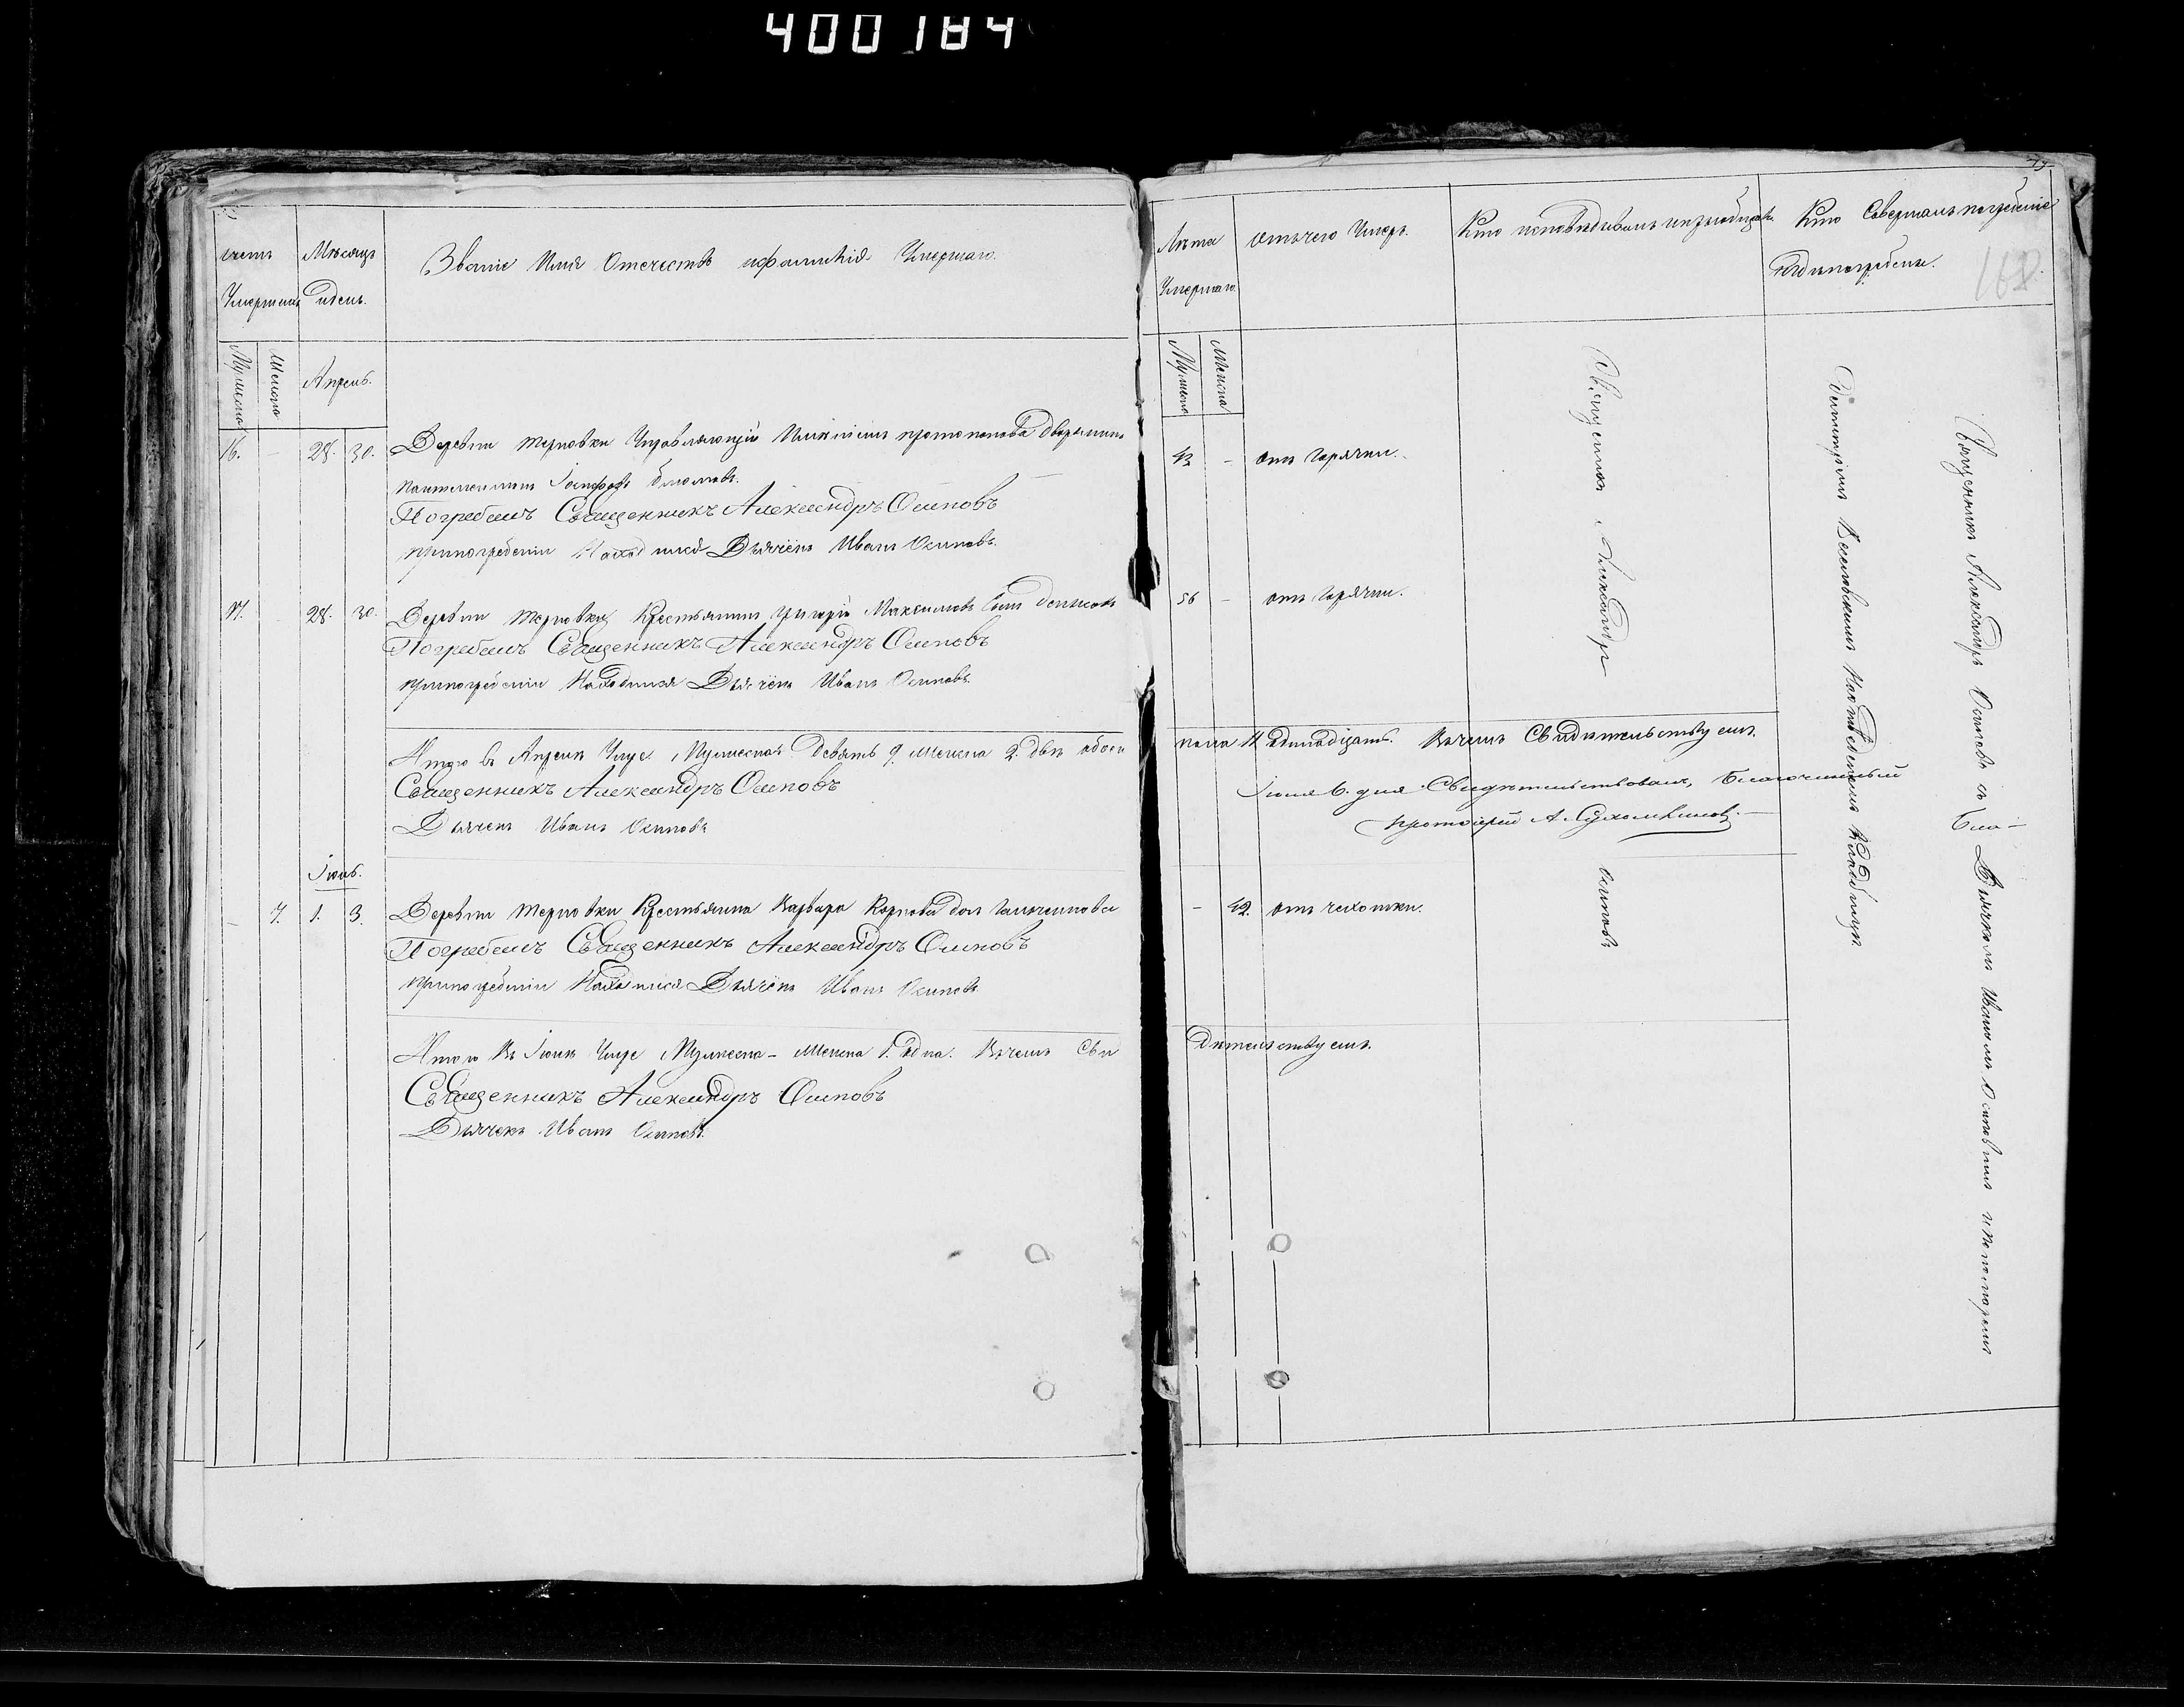 400184
счетъ Умершихъ
Мѣсяцъ и день.
Званіе Имя Отечество и фамилія Умершаго.
Мужеска
Женска
Апрель.
16. - 28. 30. Деревни Терновки Управляющій Имѣніемъ протопопова дворянинъ
Погребалъ Священникъ Александръ Осиповъ
при погребеніи Находился Дьячекъ Иванъ Осиповъ.
17. 28. 30. Деревни Терновки Крестьянинъ Григорій Максимовъ сынъ
Погребалъ Священникъ Александръ Осиповъ
при погребеніи Находился Дьячекъ Иванъ Осиповъ.
Итого въ Апрелѣ Умре Мужеска Девять 9. Женска 2. двѣ обоего
Священникъ Александръ Осиповъ
Дьячекъ Иванъ Осиповъ
Іюнь.
- 7. 1. 3. Деревни Терновки Крестьянина Варвара Корнова доч
Погребалъ Священникъ Александръ Осиповъ
при погребеніи Находился Дьячекъ Иванъ Осиповъ
Итого Въ Іюнѣ Умре Мужеска - Женска 1. одна. Въ чемъ Сви
Священникъ Александръ Осиповъ
Дьячекъ Иванъ Осиповъ.
75
Лѣта Умершаго.
Отъ чего Умеръ.
Кто исповѣдывалъ и пріобщалъ.
Кто Совершалъ погребеніе и гдѣ погребены.
168
Мужеска
Женска
43 - отъ горячки.
56 - отъ горячки.
Священникъ Александръ Осиповъ
пола 11 одинадцать. Въ чемъ Свидѣтельствуемъ.
Іюня 6. дня Свидѣтельствовалъ, Благочинный
протоіерей А. Сухомлиновъ.
- 42. отъ чахотки.
дѣтельствуемъ.
Священникъ Александръ Осиповъ съ Дьячкомъ Иваномъ Осиповымъ и Пономаремъ
кладбищѣ.